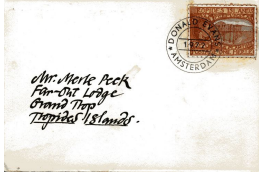 TROPIDES ISLANDS
DONALD EVANS
AMSTERDAM
Mr. Merle Peek
Far-Out Lodge
Grand Trop
Tropides Islands.